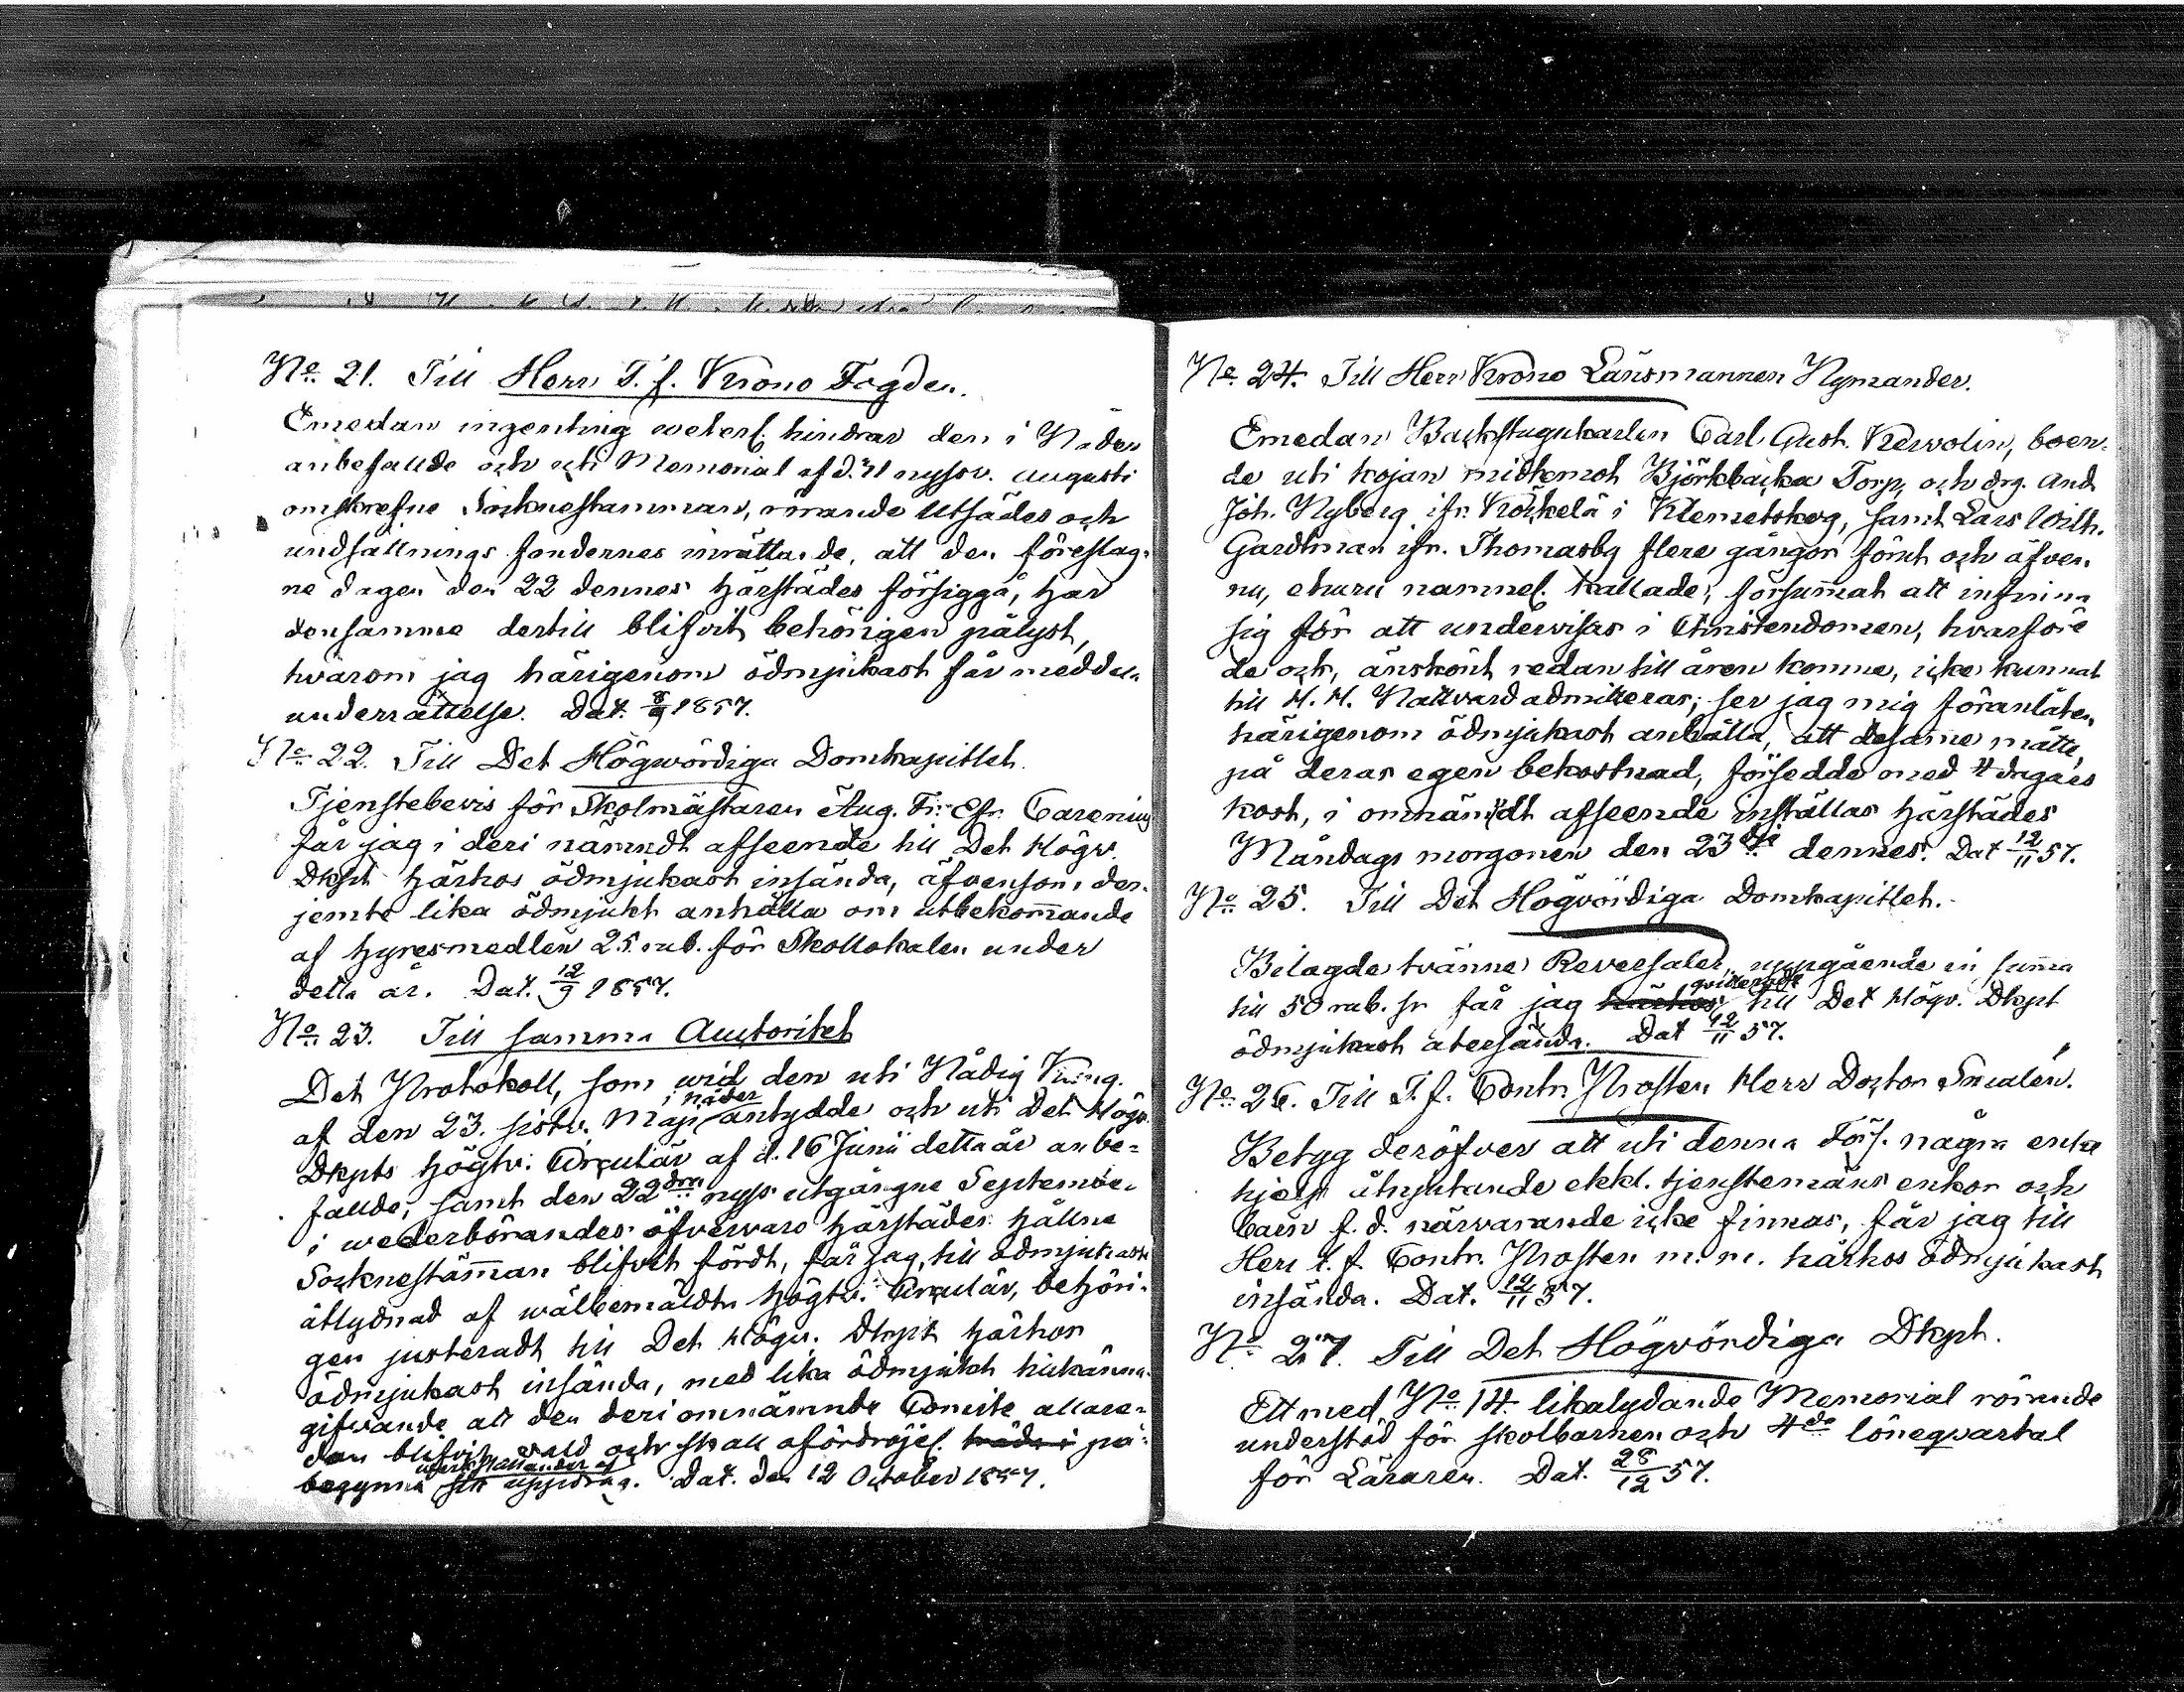 No 21. Till Herr T. f. Krono Fogden.
Emedan ingenting veterl. hindrar den i Nåder
anbefallde och uti Memorial af d. 31 nyssv. Augusti
omskrefne Socknestämman, rörande Utsädes och
undsättnings fondernes inrättande, att den föreslag-
ne dagen den 22 dennes härstädes försiggå, har
densamma dertill blifvit behörigen pålyst,
hvarom jag härigenom ödmjukast får meddela
underrättelse. Dat. 8/9 1857.
No 22. Till Det Högvördiga Domkapitlet.
Tjenstebevis för Skolmästaren Aug. Fr. Efr. Carenius
får jag i deri nämndt afseende till Det Högv.
Dkplt härhos ödmjukast insända, äfvensom der-
jemte lika ödmjukt anhålla om utbekom̄ande
af hyresmedlen 25 rub. för Skollokalen under
detta år. Dat. 12/9 1857.
No 23. Till samma Auctoritet
Det Protokoll, som wid den uti Nådig Kung.
af den 23. sistv. Maji i nåder antydde och uti Det Högv.
Dkplts högtv. Circulär af d. 16 Junii detta år anbe-
fallda, samt den 22dra nyss utgångne September
i wederbörandes öfvervaro härstädes hållne
Sockneståm̄an blifvit fördt, får jag, till ödmjukaste
åtlydnad af wälbemäldta högtv. Circulär, behöri-
gen justeradt till Det Högv. Dkplt härhos
ödmjukast insända, med lika ödmjukt tillkänna-
gifvande att den deri omnämnde Comite allare-
dan blifvit vald och skall ofördröjel. träda i på-
begynna werkställandet af sitt uppdrag. Dat. den 12 October 1857.
No 24. Till Herr Krono Länsmannen Nymander.
Emedan Backstugukarlen Carl Gust. Kervolin, boen-
de uti kojan midtemot Björkbacka Torp, och drg. And.
Joh. Nyberg ifr. Köckelä i Klemetskog, samt Lars Wilh.
Gardtman ifr. Thomasby flere gångor förut och äfven
nu, ehuru namnel. kallade, försum̄at att infinna
sig för att undervisas i Christendomen, hvarföre
de ock, änskönt redan till åren komne, icke kunnat
till H. H. Nattvard admitteras; ser jag mig föranlåten
härigenom ödmjukast anhålla, att desam̄e måtte,
på deras egen bekostnad, försedde med 4 dagars
kost, i omnämndt afseende inställas härstädes
Måndags morgonen den 23dje dennes. Dat 12/11 57.
No 25. Till Det Högvördiga Domkapitlet.
Bilagde tvänne Reversaler, uppgående in sum̄a
till 50 rub. sr får jag härhos qvitterade till Det Högv. Dkplt
ödmjukast återsända. Dat 12/11 57.
No 26. Till T. f. Contr. Prosten Herr Doctor
Betyg deröfver att uti denna Förs. några enke
hjelp åtnjutande ekkl. tjenstemäns enkor och
barn f. d. närvarande icke finnas, får jag till
Herr t. f. Contr. Prosten m. m. härhos ödmjukast
insända. Dat. 12/11 57.
No 27. Till Det Högvördiga Dkplt.
Ett med No 14 likalydande Memorial rörande
understöd för skolbarnen och 4de löneqvartal
för Läraren. Dat. 28/12 57.